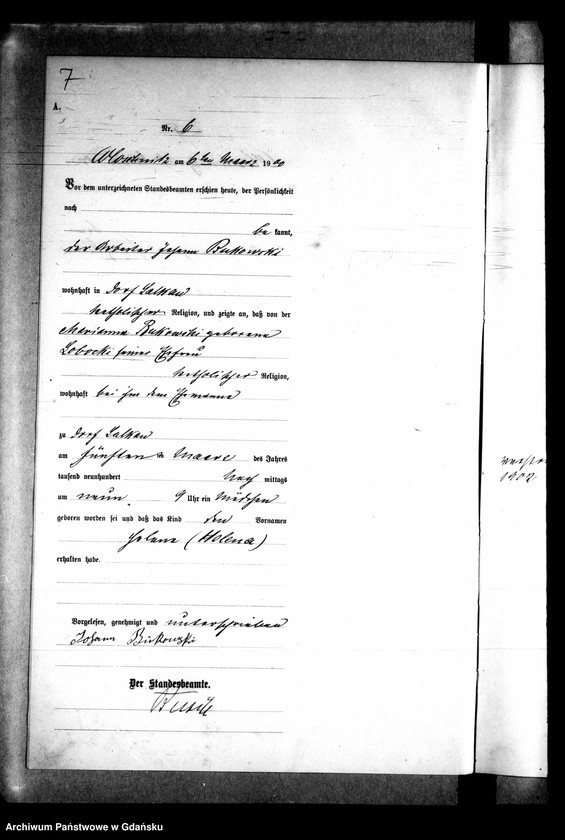 7
A.
Nr. 6
am 6ten Maerz 1900
Vor dem unterzeichneten Standesbeamten erschien heute, der Persönlichkeit
nach
be kannt,
der Arbeiter Johann Bukowski
wohnhaft in Dorf Lalkau
katholischer Religion, und zeigte an, daß von der
Marianna Bukowski geborene
Lobocki seiner Ehefrau
katholischer Religion,
wohnhaft bei ihm dem Ehemanne
zu Dorf Lalkau
am fünften Maerz des Jahres
tausend neunhundert Nach mittags
um neun 9 Uhr ein Mädchen
geboren worden sei und daß das Kind den Vornamen
Helene (Helena)
erhalten habe.
Vorgelesen, genehmigt und unterschrieben
Johann Bukowski
Der Standesbeamte.
1902
Archiwum Państwowe w Gdańsku